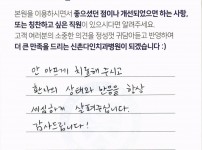 본원을 이용하시면서 좋으셨던 점이나 개선되었으면 하는 사항,
또는 칭찬하고 싶은 직원이 있으시다면 알려주세요.
고객 여러분의 소중한 의견을 정성껏 귀담아듣고 반영하여
더 큰 만족을 드리는 신촌다인치과병원이 되겠습니다 :)
안 아프게 치료해 주시고
환자의 상태와 반응을 항상
세심하게 살펴주십니다.
감사드립니다!